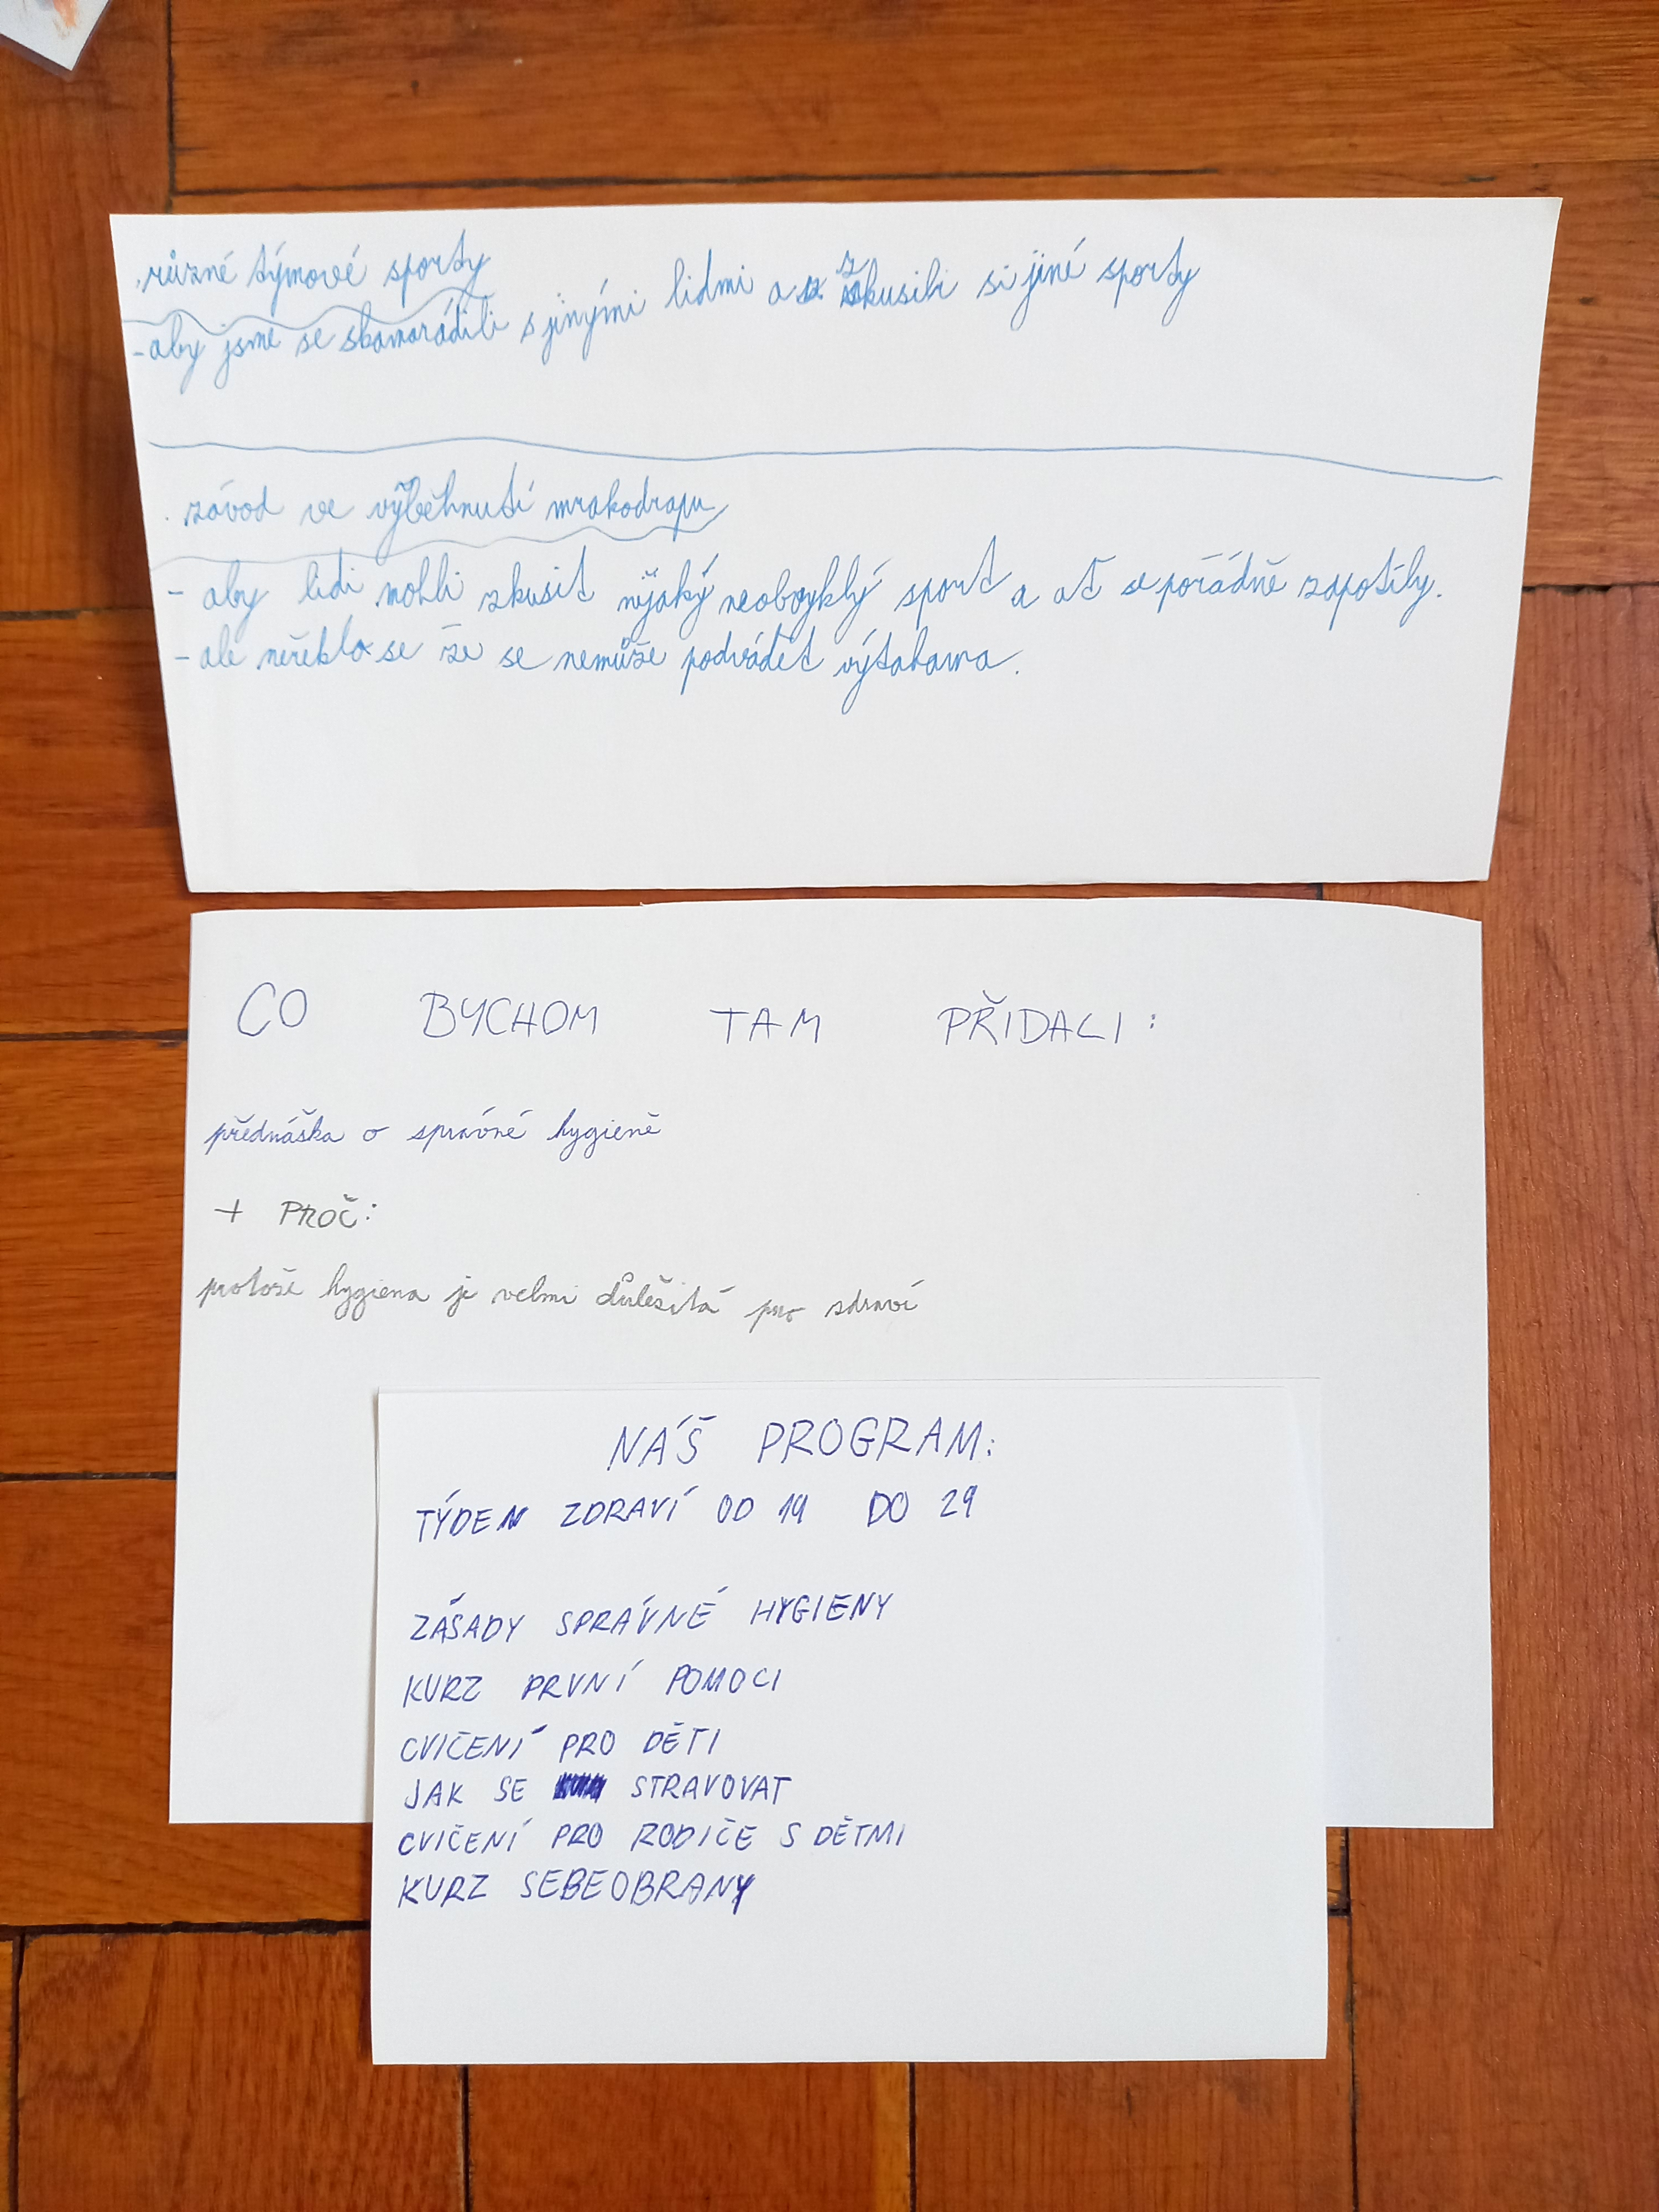 . různé týmové sporty
- aby jsme se skamarádili s jinými lidmi a zkusili si jiné sporty
. závod ve výběhnutí mrakodrapu
- aby lidi mohli zkusit nějaký neobvyklý sport a ať se pořádně zapotily.
- ale neřeklo se že se nemůže podvádět výtahama.
CO BYCHOM TAM PŘIDALI:
přednáška o správné hygieně
+ PROČ:
protože hygiena je velmi důležitá pro zdraví
NÁŠ PROGRAM:
TÝDEN ZDRAVÍ OD 19 DO 29
ZÁSADY SPRÁVNÉ HYGIENY
KURZ PRVNÍ POMOCI
CVIČENÍ PRO DĚTI
JAK SE STRAVOVAT
CVIČENÍ PRO RODIČE S DĚTMI
KURZ SEBEOBRANY